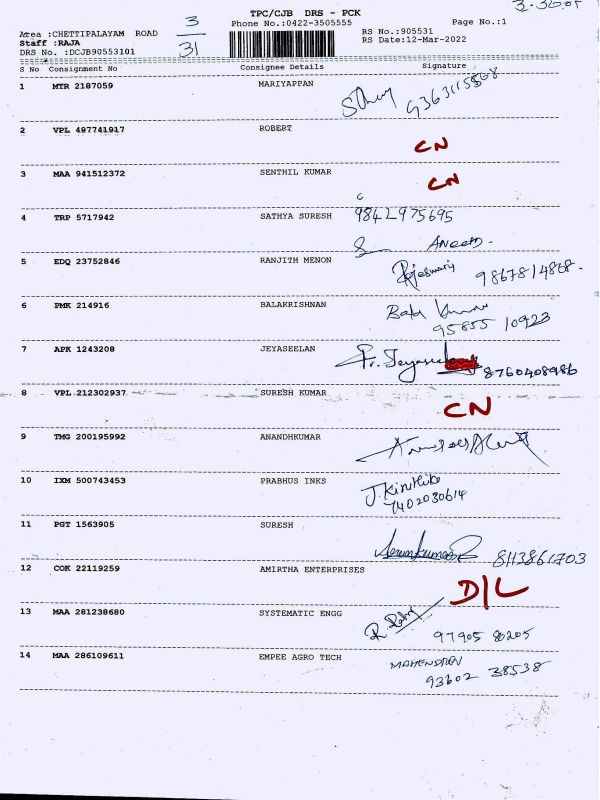 TPC/CJB DRS - PCK
3
Area :CHETTIPALAYAM ROAD
Phone No.:0422-3505555
Page No.:1
Staff :RAJA
31
RS No.:905531
DRS No. :DCJB90553101
RS Date:12-Mar-2022
S No Consignment No Consignee Details Signature
1 MTR 2187059 MARIYAPPAN
9363115868
2 VPL 497741917 ROBERT
CN
3 MAA 941512372 SENTHIL KUMAR
CN
4 TRP 5717942 SATHYA SURESH 9842975695
5 EDQ 23752846 RANJITH MENON
Rajeswari 9867814868.
6 PMK 214916 BALAKRISHNAN
95855 10923
7 APK 1243208 JEYASEELAN
8760408986
8 VPL 212302937 SURESH KUMAR
CN
9 TMG 200195992 ANANDHKUMAR
10 IXM 500743453 PRABHUS INKS
7402030614
11 PGT 1563905 SURESH
Arunkumar 8113861703
12 COK 22119259 AMIRTHA ENTERPRISES
D/L
13 MAA 281238680 SYSTEMATIC ENGG
97905 80205
14 MAA 286109611 EMPEE AGRO TECH
MAHENDRAN
93602 38538